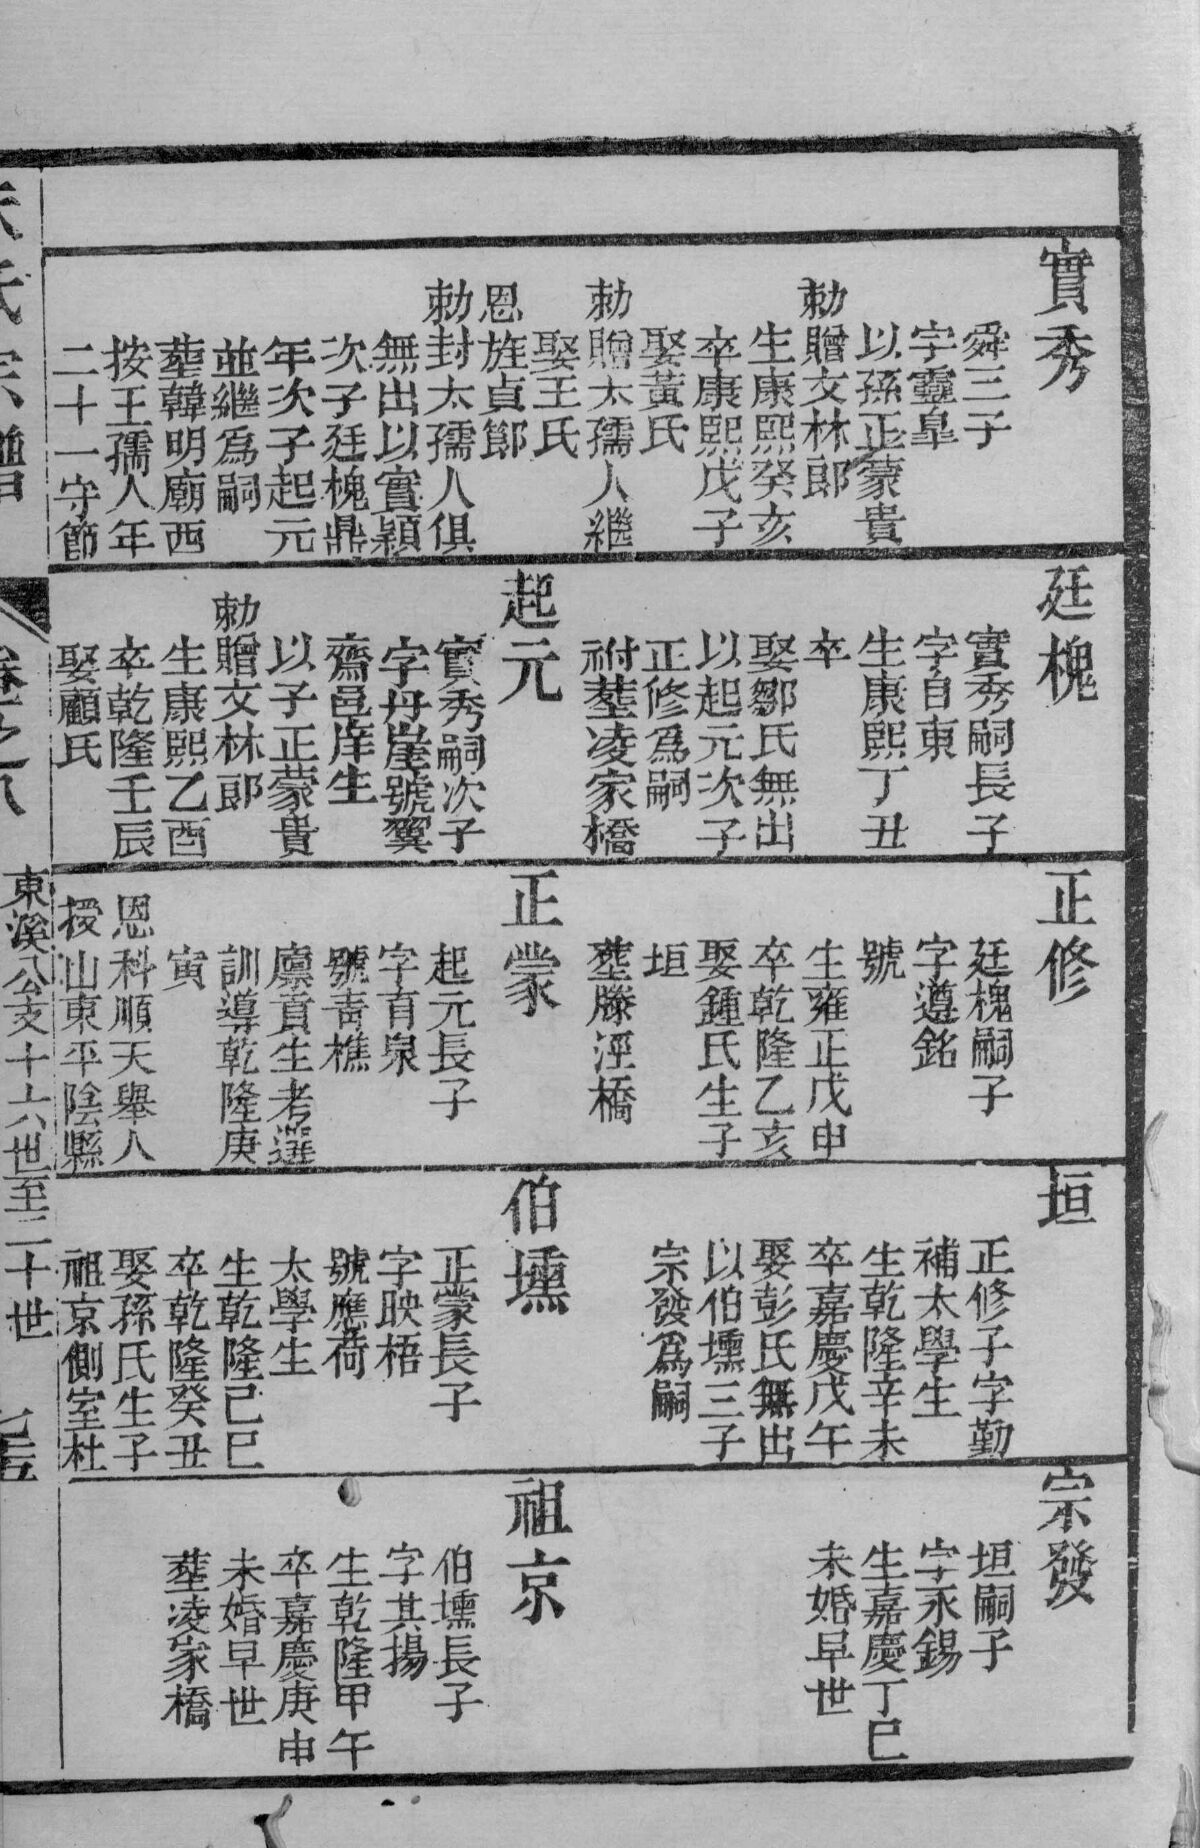 實秀
舜三子
字靈臯
以孫正蒙貴
勅贈文林郎
生康熙癸亥
卒康熙戊子
娶黃氏
勅贈太孺人繼
娶王氏
恩旌貞節
勅封太孺人俱
無出以實穎
次子廷槐鼎
年次子起元
並繼爲嗣
塟韓明廟西
按王孺人年
二十一守節
廷槐
實秀嗣長子
字自東
生康熙丁丑
卒
娶鄒氏無出
以起元次子
正修爲嗣
祔塟凌家橋
起元
實秀嗣次子
字丹崖號翼
齋邑庠生
以子正蒙貴
勅贈文林郎
生康熙乙酉
卒乾隆壬辰
娶顧氏
正修
廷槐嗣子
字遵銘
號
生雍正戊申
卒乾隆乙亥
娶鍾氏生子
垣
塟滕涇橋
正蒙
起元長子
字育泉
號青樵
廩貢生考選
訓導乾隆庚
寅
恩科順天舉人
授山東平陰縣
垣
正修子字勤
補太學生
生乾隆辛未
卒嘉慶戊午
娶彭氏無出
以伯壎三子
宗發爲嗣
伯壎
正蒙長子
字映梧
號應荷
太學生
生乾隆己巳
卒乾隆癸丑
娶孫氏生子
祖京側室杜
宗發
垣嗣子
字永錫
生嘉慶丁巳
未婚早世
祖京
伯壎長子
字其揚
生乾隆甲午
卒嘉慶庚申
未婚早世
塟凌家橋
氏宗譜
卷之八
東溪公支十六世至二十世
七五